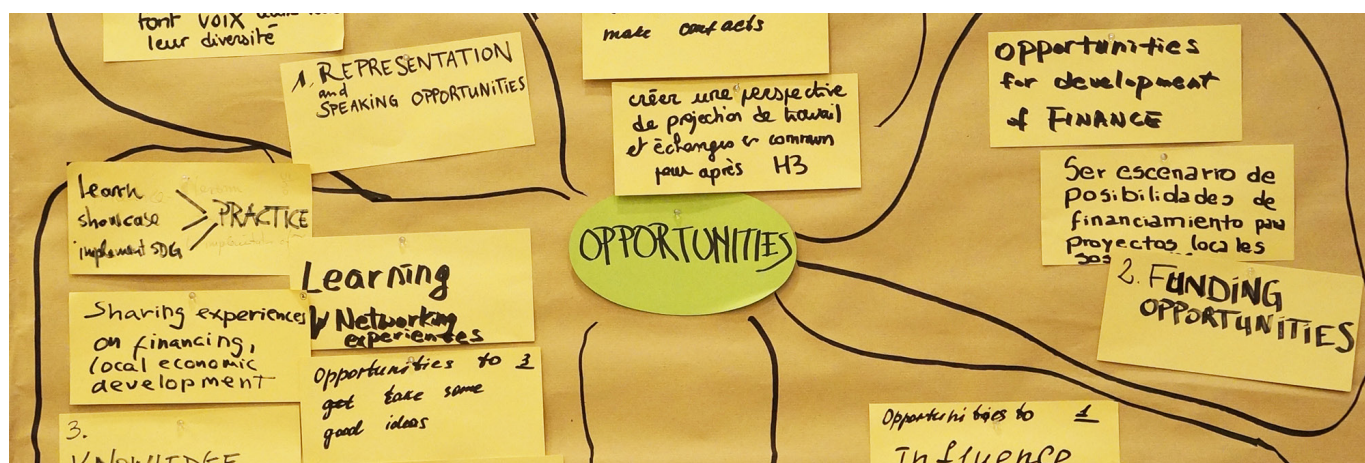 font voix
leur diversité
1. REPRESENTATION
and
SPEAKING OPPORTUNITIES
make contacts
créer une perspective
de projection de travail
et échanges en commun
pour après H3
Opportunities
for development
of FINANCE
Ser escenario de
posibilidades de
financiamiento para
proyectos locales
2. FUNDING
OPPORTUNITIES
OPPORTUNITIES
Learn
showcase
implement SDG
PRACTICE
Learning
Networking
experiences
Sharing experiences
on financing,
local economic
development
Opportunities to 3
get take some
good ideas
3.
KNOWLEDGE
Opportunities to 1
Influence